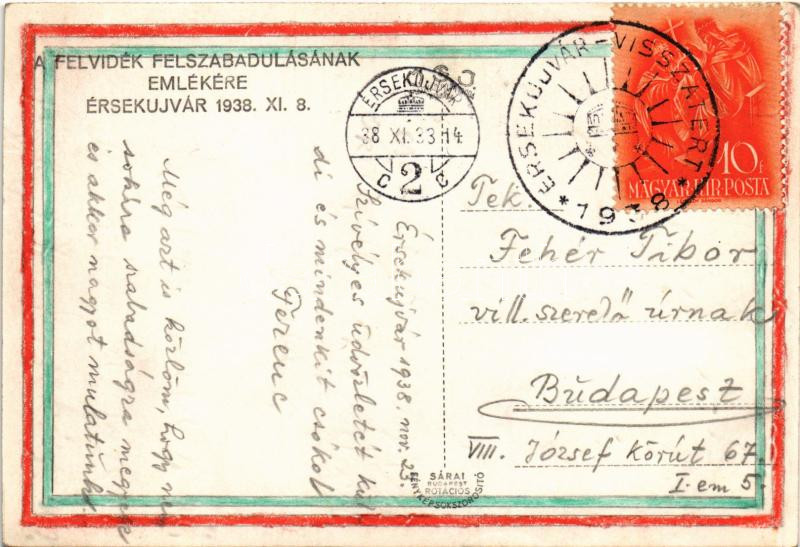 A FELVIDÉK FELSZABADULÁSÁNAK
EMLÉKÉRE
ÉRSEKUJVÁR 1938. XI. 8.
ÉRSEKUJVÁR
38 XI. 23 14
C 2 C
ÉRSEKUJVÁR - VISSZATÉRT
* 1938 *
10f
MAGYAR KIR. POSTA
Érsekujvár 1938. nov. 23.
Szívélyes üdvözletét kül-
di és mindenkit csókol
Ferenc
Még azt is közlöm, hogy nem
sokára szabadságra megyek
és akkor nagyot mulatunk.
Tek.
Fehér Tibor
vill. szerelő úrnak
Budapest
VIII. József körút 67.
I. em 5.
SÁRAI
BUDAPEST
ROTÁCIÓS
FÉNYKÉPSOKSZOROSÍTÓ